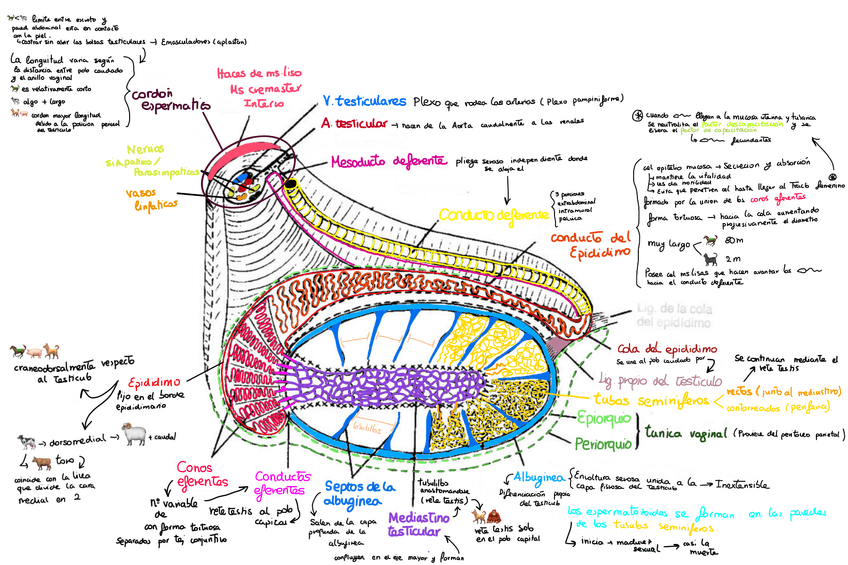 limite entre escroto y
pared abdominal esta en contacto
con la piel.
castrar sin abrir las bolsas testiculares → Emasculadores (aplastan)
La longuitud varia según
la distancia entre polo caudado
y el anillo vaginal
es relativamente corto
algo + largo
cordon mayor longuitud
debido a la posición perineal
de testiculo
cordon
espermatico
Haces de ms liso
Ms cremaster
Interno
V. testiculares Plexo que rodea las arterias (Plexo pampiniforme)
A. testicular → nacen de la Aorta caudalmente a las renales
Mesoducto deferente pliege seroso independiente donde
se aloja el
Conducto deferente
3 porciones
extrabdominal
intramural
pelvica
Nervios
simpatico/
Parasimpaticos
vasos
linfaticos
conducto del
Epididimo
cuando llegan a la mucosa uterina y tubarica
se neutraliza el factor descapacitación y se
libera el factor de capacitación
↳ fecundantes
cel epitelio mucosa → Secrecion y absorción
↳ mantiene la vitalidad
↳ les da motilidad
↳ Evita que penetren al hasta llegar al Tracto femenino
formado por la union de los conos eferentes
forma tortuosa → hacia la cola aumentando
progresivamente el diametro
muy largo
80m
2m
Poseen cel ms lisas que hacen avanzar los
hacia el conducto deferente
Lig. de la cola
del epidídimo
Cola del epididimo
Se une al polo caudado por
Lig propio del testiculo
Se continuan mediante el
rete testis
tubos seminiferos
rectos (junto al mediastino)
contorneados (periferia)
Epiorquio
Periorquio
tunica vaginal (Proviene del peritoneo parietal)
craneodorsalmente respecto
al testiculo
Epididimo
fijo en el borde
epididimario
→ dorsomedial → + caudal
toro
coincide con la linea
que divide la cara
medial en 2
Conos
eferentes
nº variable
de
con forma tortuosa
separados por tej conjuntivo
Conductos
eferentes
rete testis al polo
capital
lobulillos
Septos de la
albuginea
Salen de la capa
profunda de la
albuginea
confluyen en el eje mayor y forman
tubulillos
anastomosados
(rete testis)
Mediastino
testicular
rete testis solo
en el polo capital
Albuginea
Diferenciación propia
del testiculo
Envoltura serosa unida a la
capa fibrosa del testiculo
→ Inextensible
los espermatozoides se forman en las paredes
de los tubulos seminiferos
↳ inicia → madurez
sexual → casi la
muerte